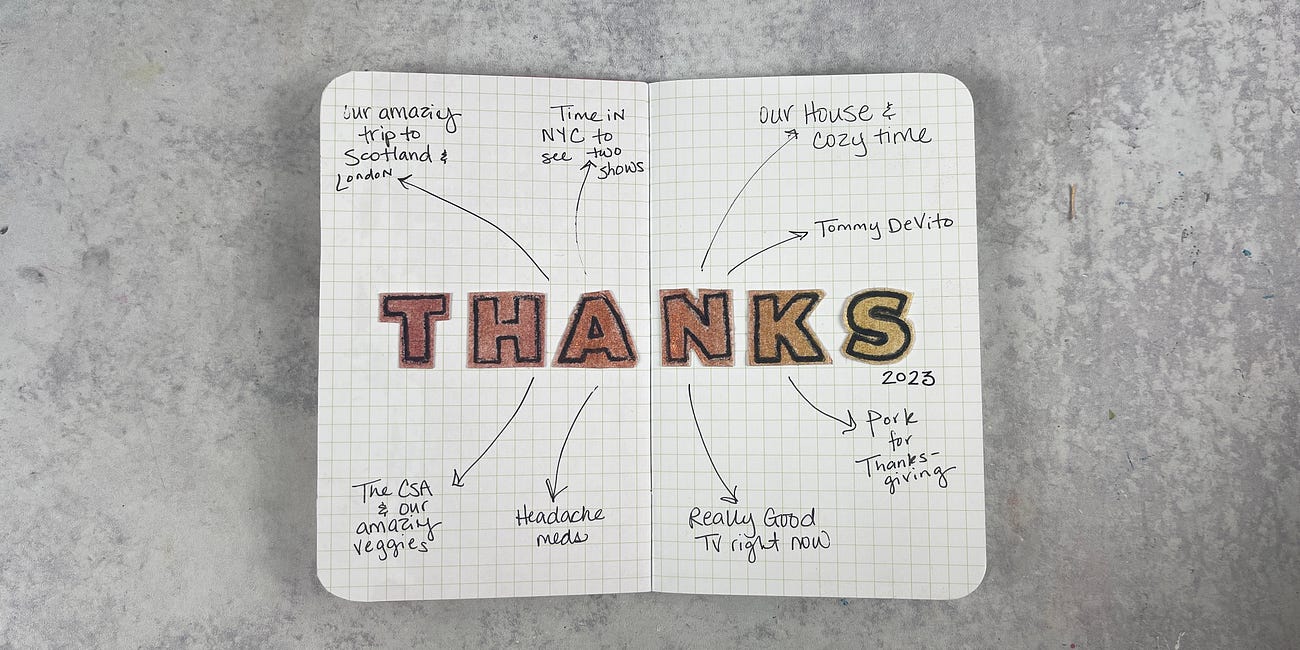 our amazing
trip to
Scotland &
London
Time in
NYC to
see two
shows
our House &
cozy time
Tommy DeVito
THANKS
2023
The CSA
& our
amazing
veggies
Headache
meds
Really Good
TV right now
Pork
for
Thanks-
giving